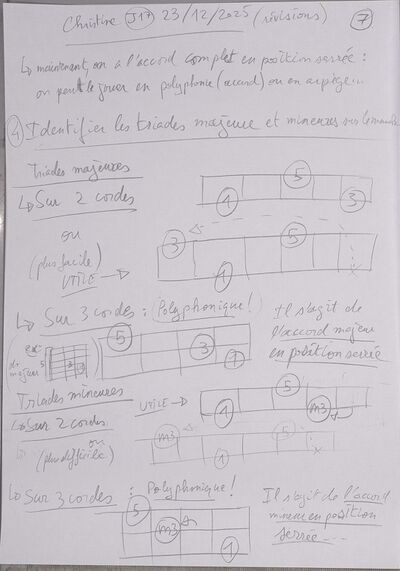 Christine J17 23/12/2025 (révisions) 7
↳ maintenant, on a l'accord complet en position serrée :
on peut le jouer en polyphonie (accord) ou en arpège...
4 Identifier les triades majeure et mineures sur le manche
Triades majeures
↳ Sur 2 cordes
5
1 3
ou
(plus facile)
UTILE →
3 5
1
↳ Sur 3 cordes : (Polyphonique!)
Il s'agit de
l'accord majeur
en position serrée
ex:
do
majeur
5
3
1
Triades mineures
↳ Sur 2 cordes
UTILE →
5
1 m3
ou
(plus difficile)
m3 5
1
↳ Sur 3 cordes : Polyphonique!
Il s'agit de l'accord
mineur en position
serrée...
5
m3
1